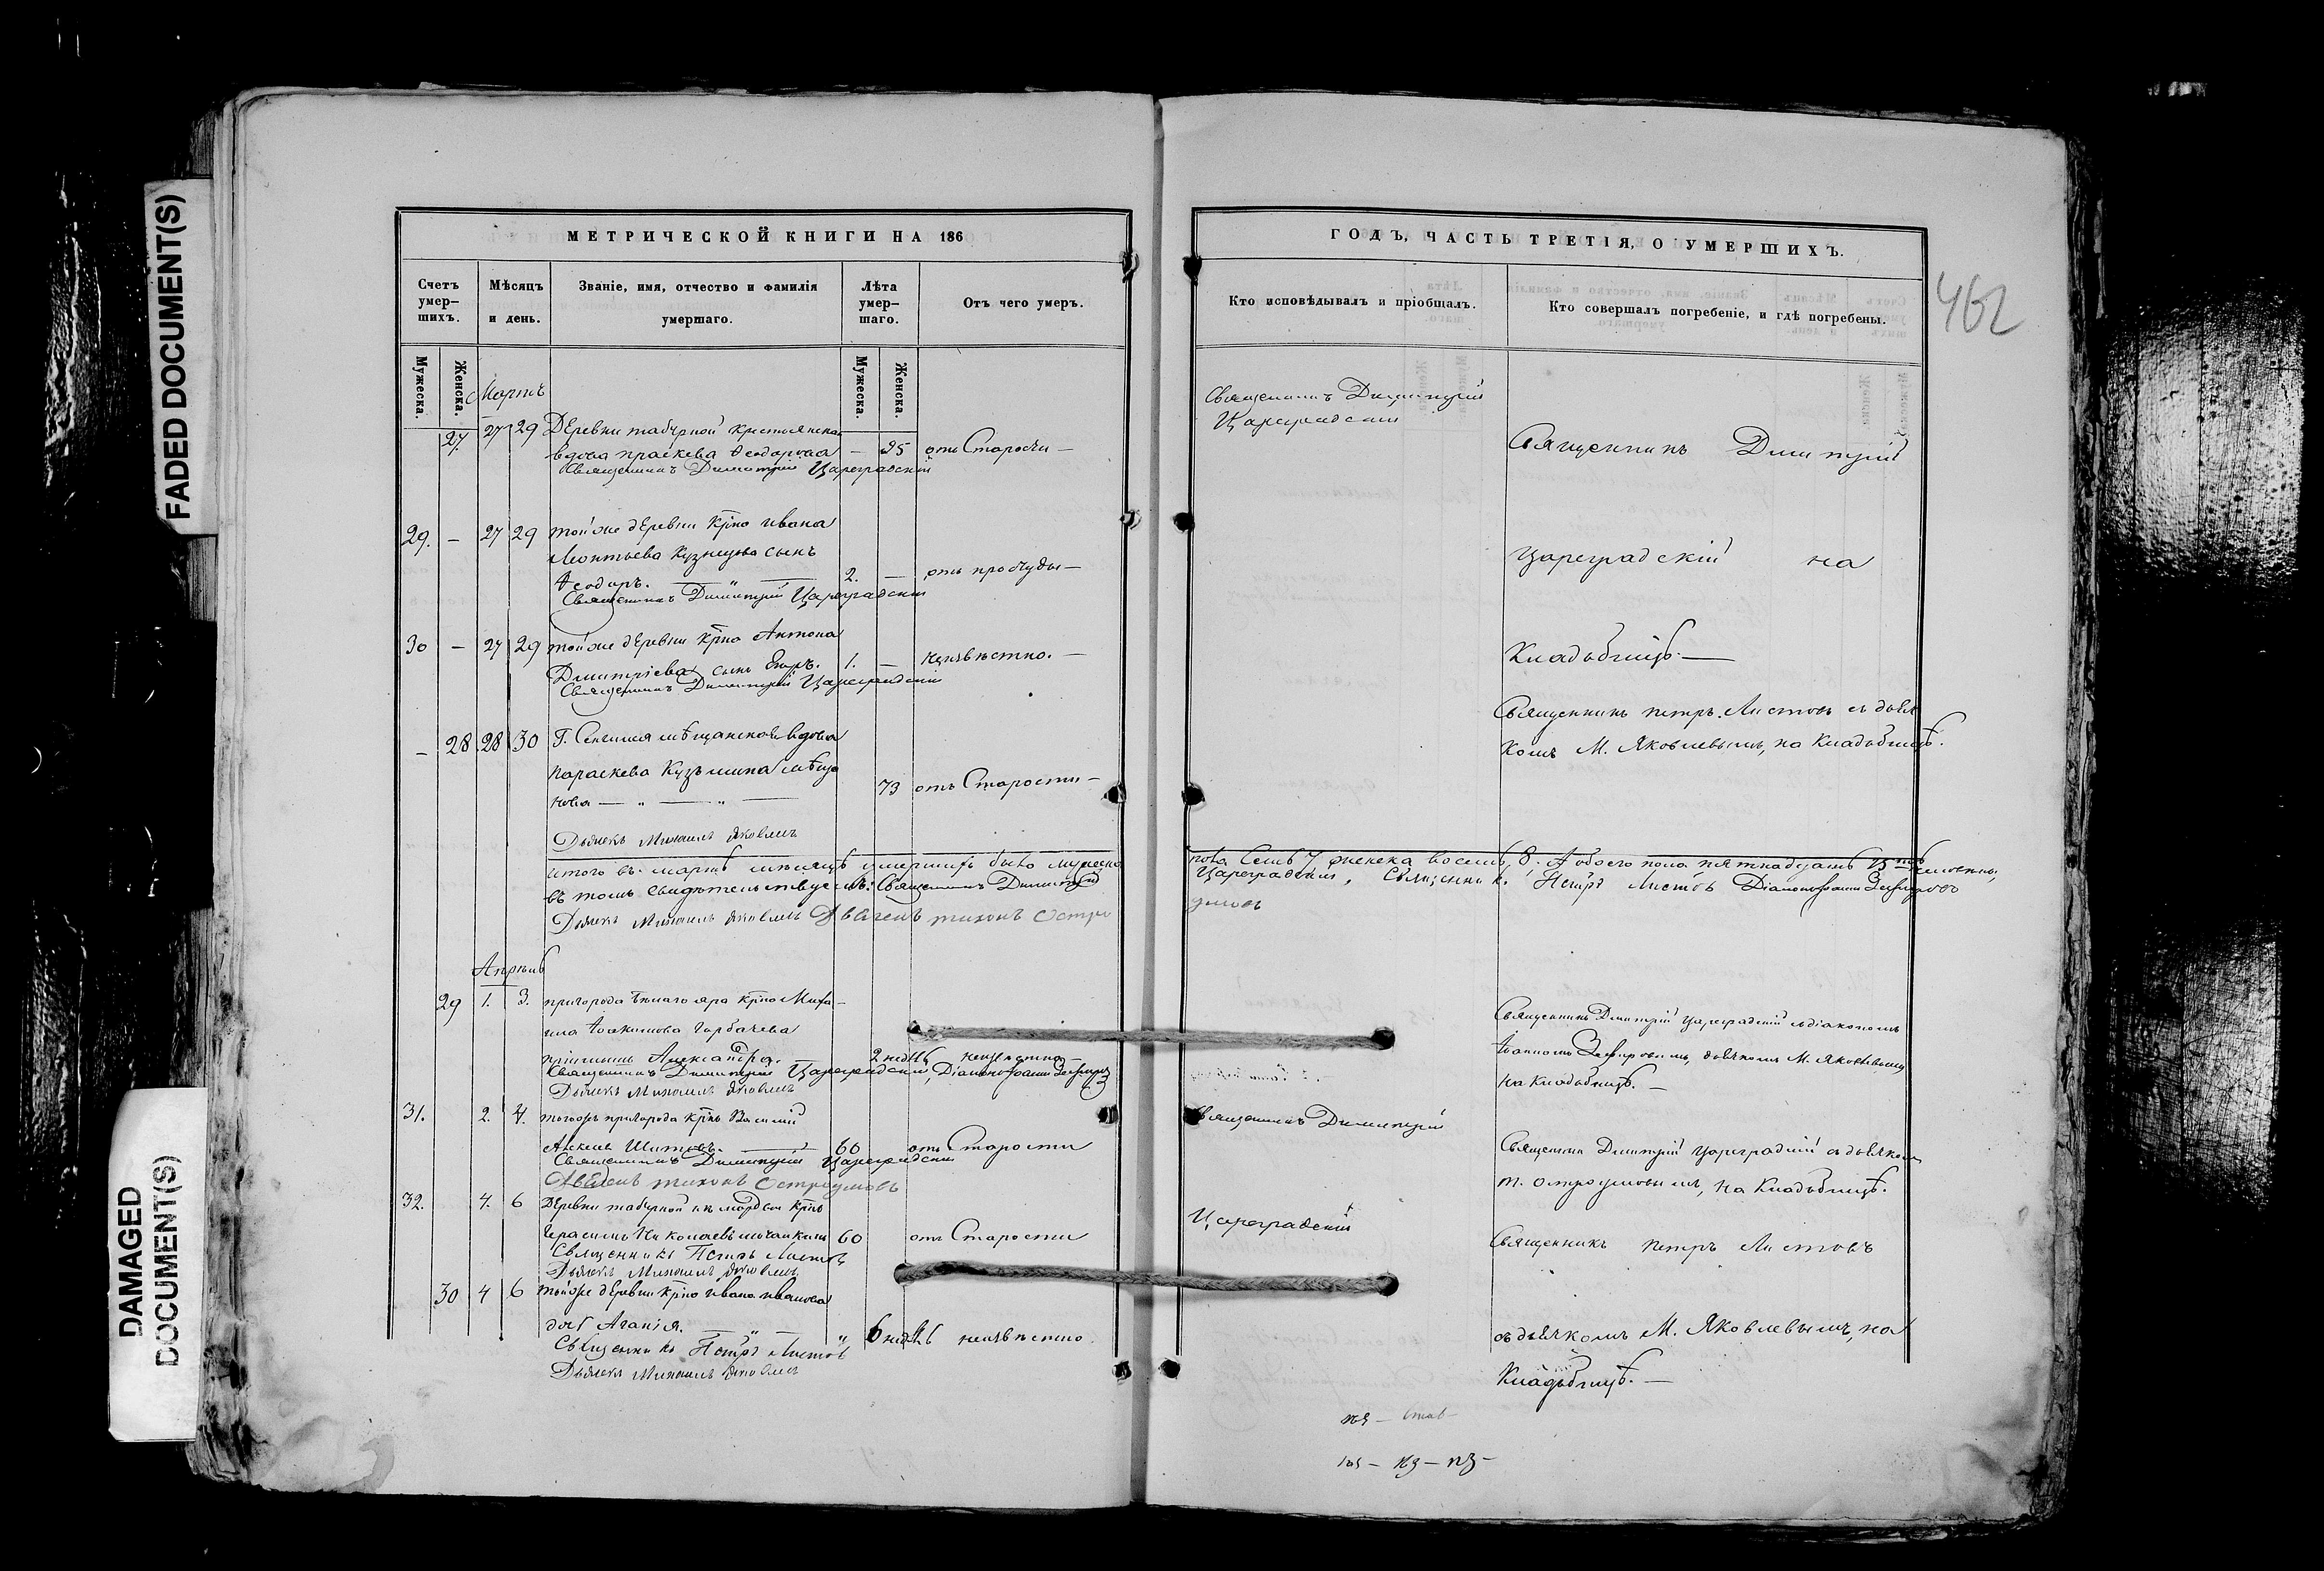 FADED DOCUMENT(S)
DAMAGED DOCUMENT(S)
МЕТРИЧЕСКОЙ КНИГИ НА 186
Счетъ умер–шихъ.
Мѣсяцъ и день.
Званіе, имя, отчество и фамилія умершаго.
Лѣта умер–шаго.
Отъ чего умеръ.
Мужеска.
Женска.
Мужеска.
Женска.
Мартъ
27. 27 29 Деревни табурной крестьянская
вдова праскева Ѳеодорова — 95 отъ Старости —
Священникъ Димитрій Цареградскій
29. — 27 29 тойже деревни крна ивана
Леонтьева Кузнецова сынъ
Ѳеодоръ. — " — 2. — отъ простуды —
Священникъ Димитрій Цареградскій
30 — 27 29 тойже деревни крна Антона
Димитріева сынъ Егоръ. 1. — неизвѣстно. —
Священникъ Димитрій Цареградскій
— 28 28 30 Г. Сенгилея мѣщанская вдова
параскева Кузьмина мѣща
нова — " — " — 73 отъ Старости —
Дьячекъ Михаилъ Яковлевъ
итого въ мартѣ мѣсяцѣ умершихъ было мужеска
въ томъ свидѣтельствуемъ: Священникъ Димитрій
Дьячекъ Михаилъ Яковлевъ Дьячекъ тихонъ Остро
Апрѣль
29 1. 3. пригорода бѣлаго яра крна Миха–
ила
Горбачева
Александра. 2 недѣль неизвѣстно —
Священникъ Димитрій Цареградскій, Діаконъ Іоаннъ Зефировъ
Дьячекъ Михаилъ Яковлевъ
31. 2. 4. тогожъ пригорода крнъ Василій
Шитовъ. — 60 отъ Старости
Священникъ Димитрій Цареградскій
Дьячекъ тихонъ Остроумовъ
32. 4. 6 Деревни табурной изъ мордвы крнъ
Герасимъ Николаевъ 60 отъ Старости
Священникъ Петръ Листовъ
Дьячекъ Михаилъ Яковлевъ
30 4 6 тойже деревни крна ивана иванова
дочь Агапія. — " — " 6 недѣль неизвѣстно.
Священникъ Петръ Листовъ
Дьячекъ Михаилъ Яковлевъ
ГОДЪ, ЧАСТЬ ТРЕТІЯ, О УМЕРШИХЪ.
Кто исповѣдывалъ и пріобщалъ.
Кто совершалъ погребеніе, и гдѣ погребены.
462
Священникъ Димитрій
Цареградскій
Священникъ Димитрій
Цареградскій на
Кладбищѣ. —
Священникъ петръ Листовъ съ дьяч
комъ М. Яковлевымъ, на Кладбищѣ.
пола Семь 7 женска восемь, 8. А обоего пола пятнадцать 15ть человекъ,
Цареградскій, Священникъ Петръ Листовъ Діаконъ Іоаннъ Зефировъ
умовъ
Священникъ Димитрій Цареградскій съ діакономъ
Іоанномъ Зефировымъ, дьячкомъ М. Яковлевымъ
на Кладбищѣ. —
Священникъ Димитрій
Священникъ Димитрій Цареградскій съ дьячкомъ
т. остроумовымъ, на Кладбищѣ.
Цареградскій
Священникъ петръ Листовъ
съ дьячкомъ М. Яковлевымъ, на
Кладбищѣ. —